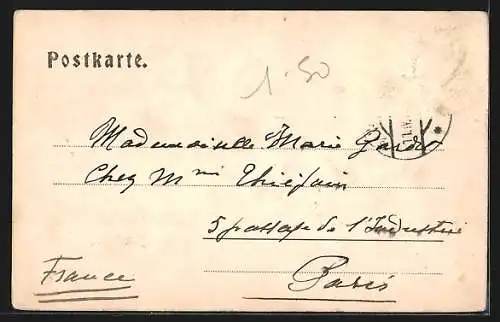 Postkarte.
1.50
Mademoiselle Marie
Chez Mme
5 passage de l'Industrie
Paris
France